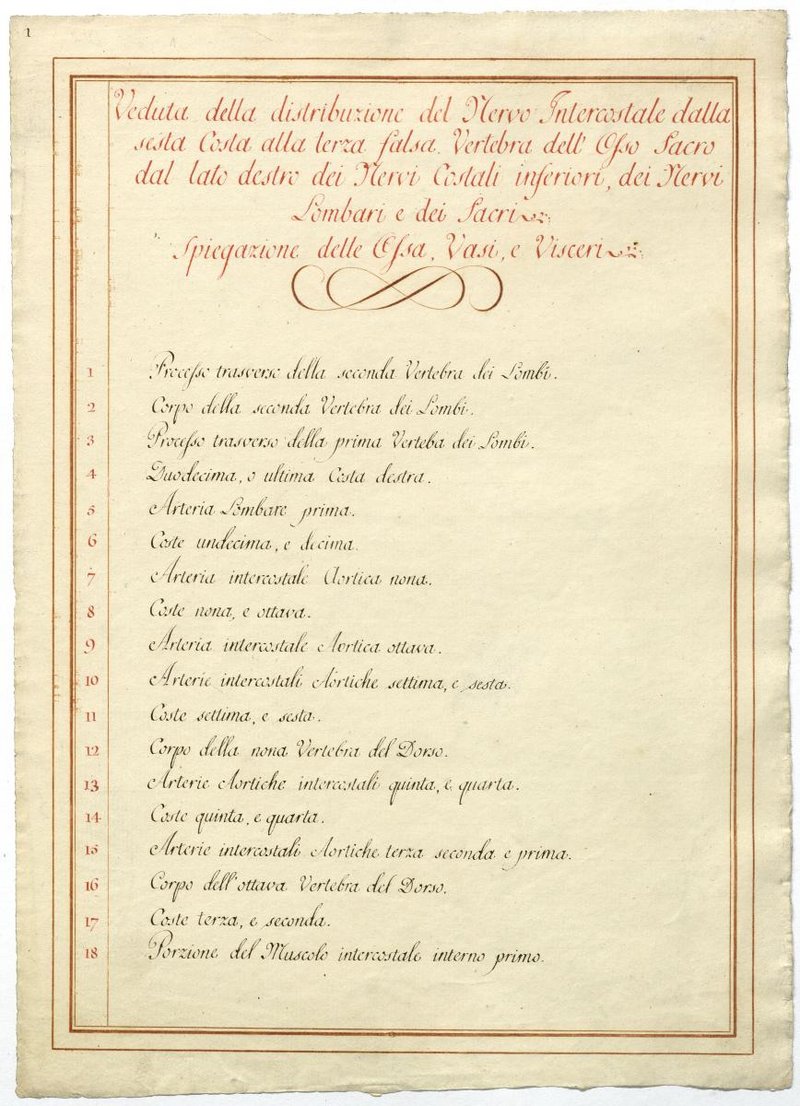 1
Veduta della distribuzione del Nervo Intercostale dalla
sesta Costa alla terza falsa Vertebra dell' Osso Sacro
dal lato destro dei Nervi Costali inferiori, dei Nervi
Lombari e dei Sacri
Spiegazione delle Ossa, Vasi, e Visceri
1 Processo trasverso della seconda Vertebra dei Lombi.
2 Corpo della seconda Vertebra dei Lombi.
3 Processo trasverso della prima Verteba dei Lombi.
4 Duodecima, o ultima Costa destra.
5 Arteria Lombare prima.
6 Coste undecima, e decima.
7 Arteria intercostale Aortica nona.
8 Coste nona, e ottava.
9 Arteria intercostale Aortica ottava.
10 Arterie intercostali Aortiche settima, e sesta.
11 Coste settima, e sesta.
12 Corpo della nona Vertebra del Dorso.
13 Arterie Aortiche intercostali quinta, e quarta.
14 Coste quinta, e quarta.
15 Arterie intercostali Aortiche terza seconda e prima.
16 Corpo dell'ottava Vertebra del Dorso.
17 Coste terza, e seconda.
18 Porzione del Muscolo intercostale interno primo.